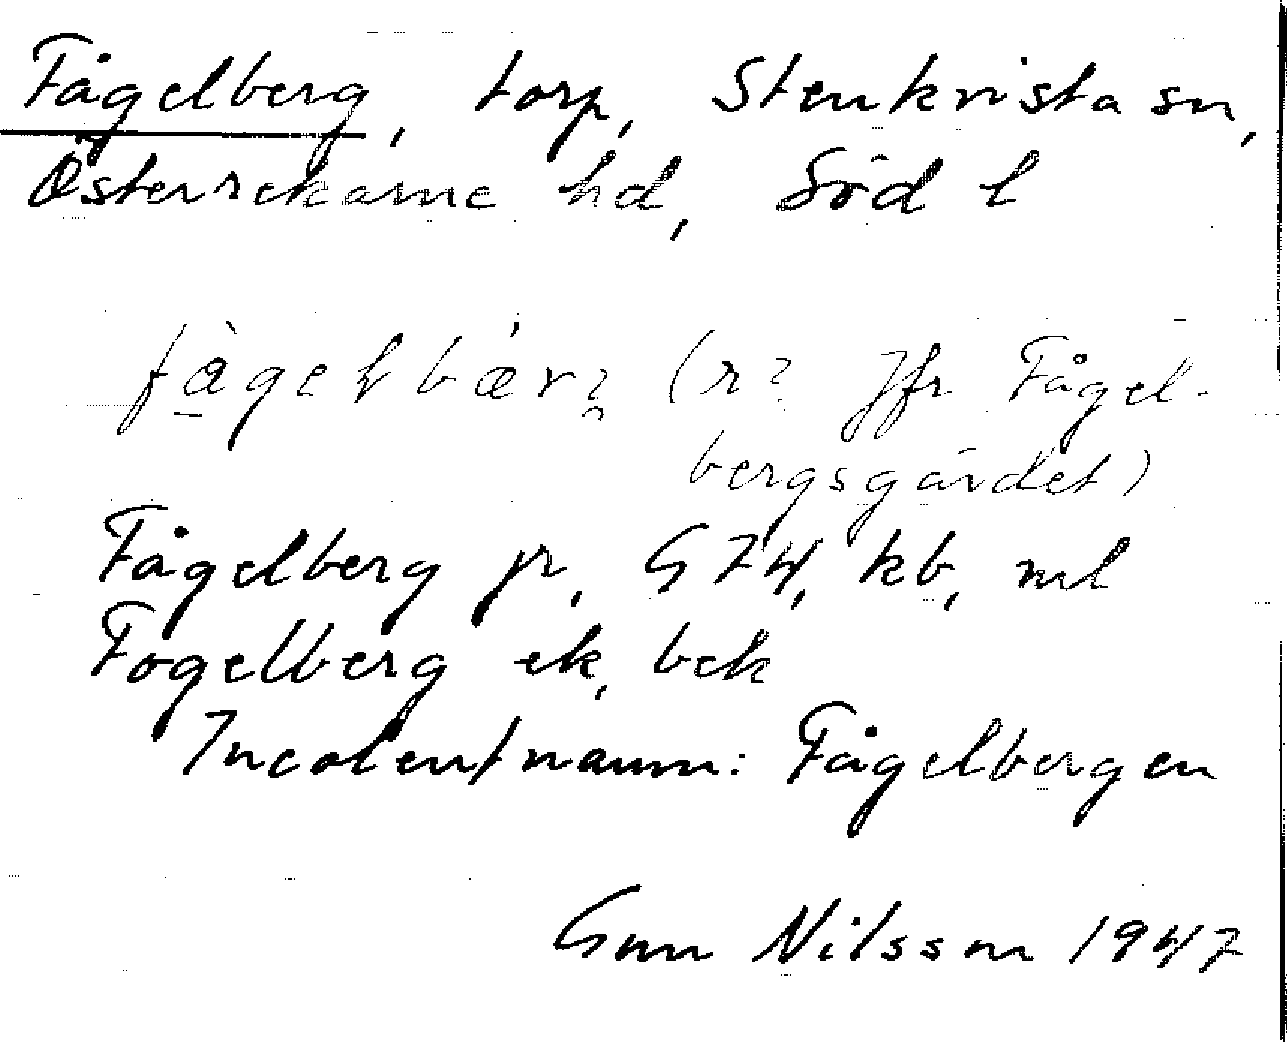 Fågelberg, torp, Stenkvista sn,
Österrekarne hd, Söd l
(r? Jfr Fågel-
bergsgärdet)
Fågelberg jr, G74, kb, ml
Fogelberg ek, bek
Incolentnamn: Fågelbergen
Gun Nilsson 1947